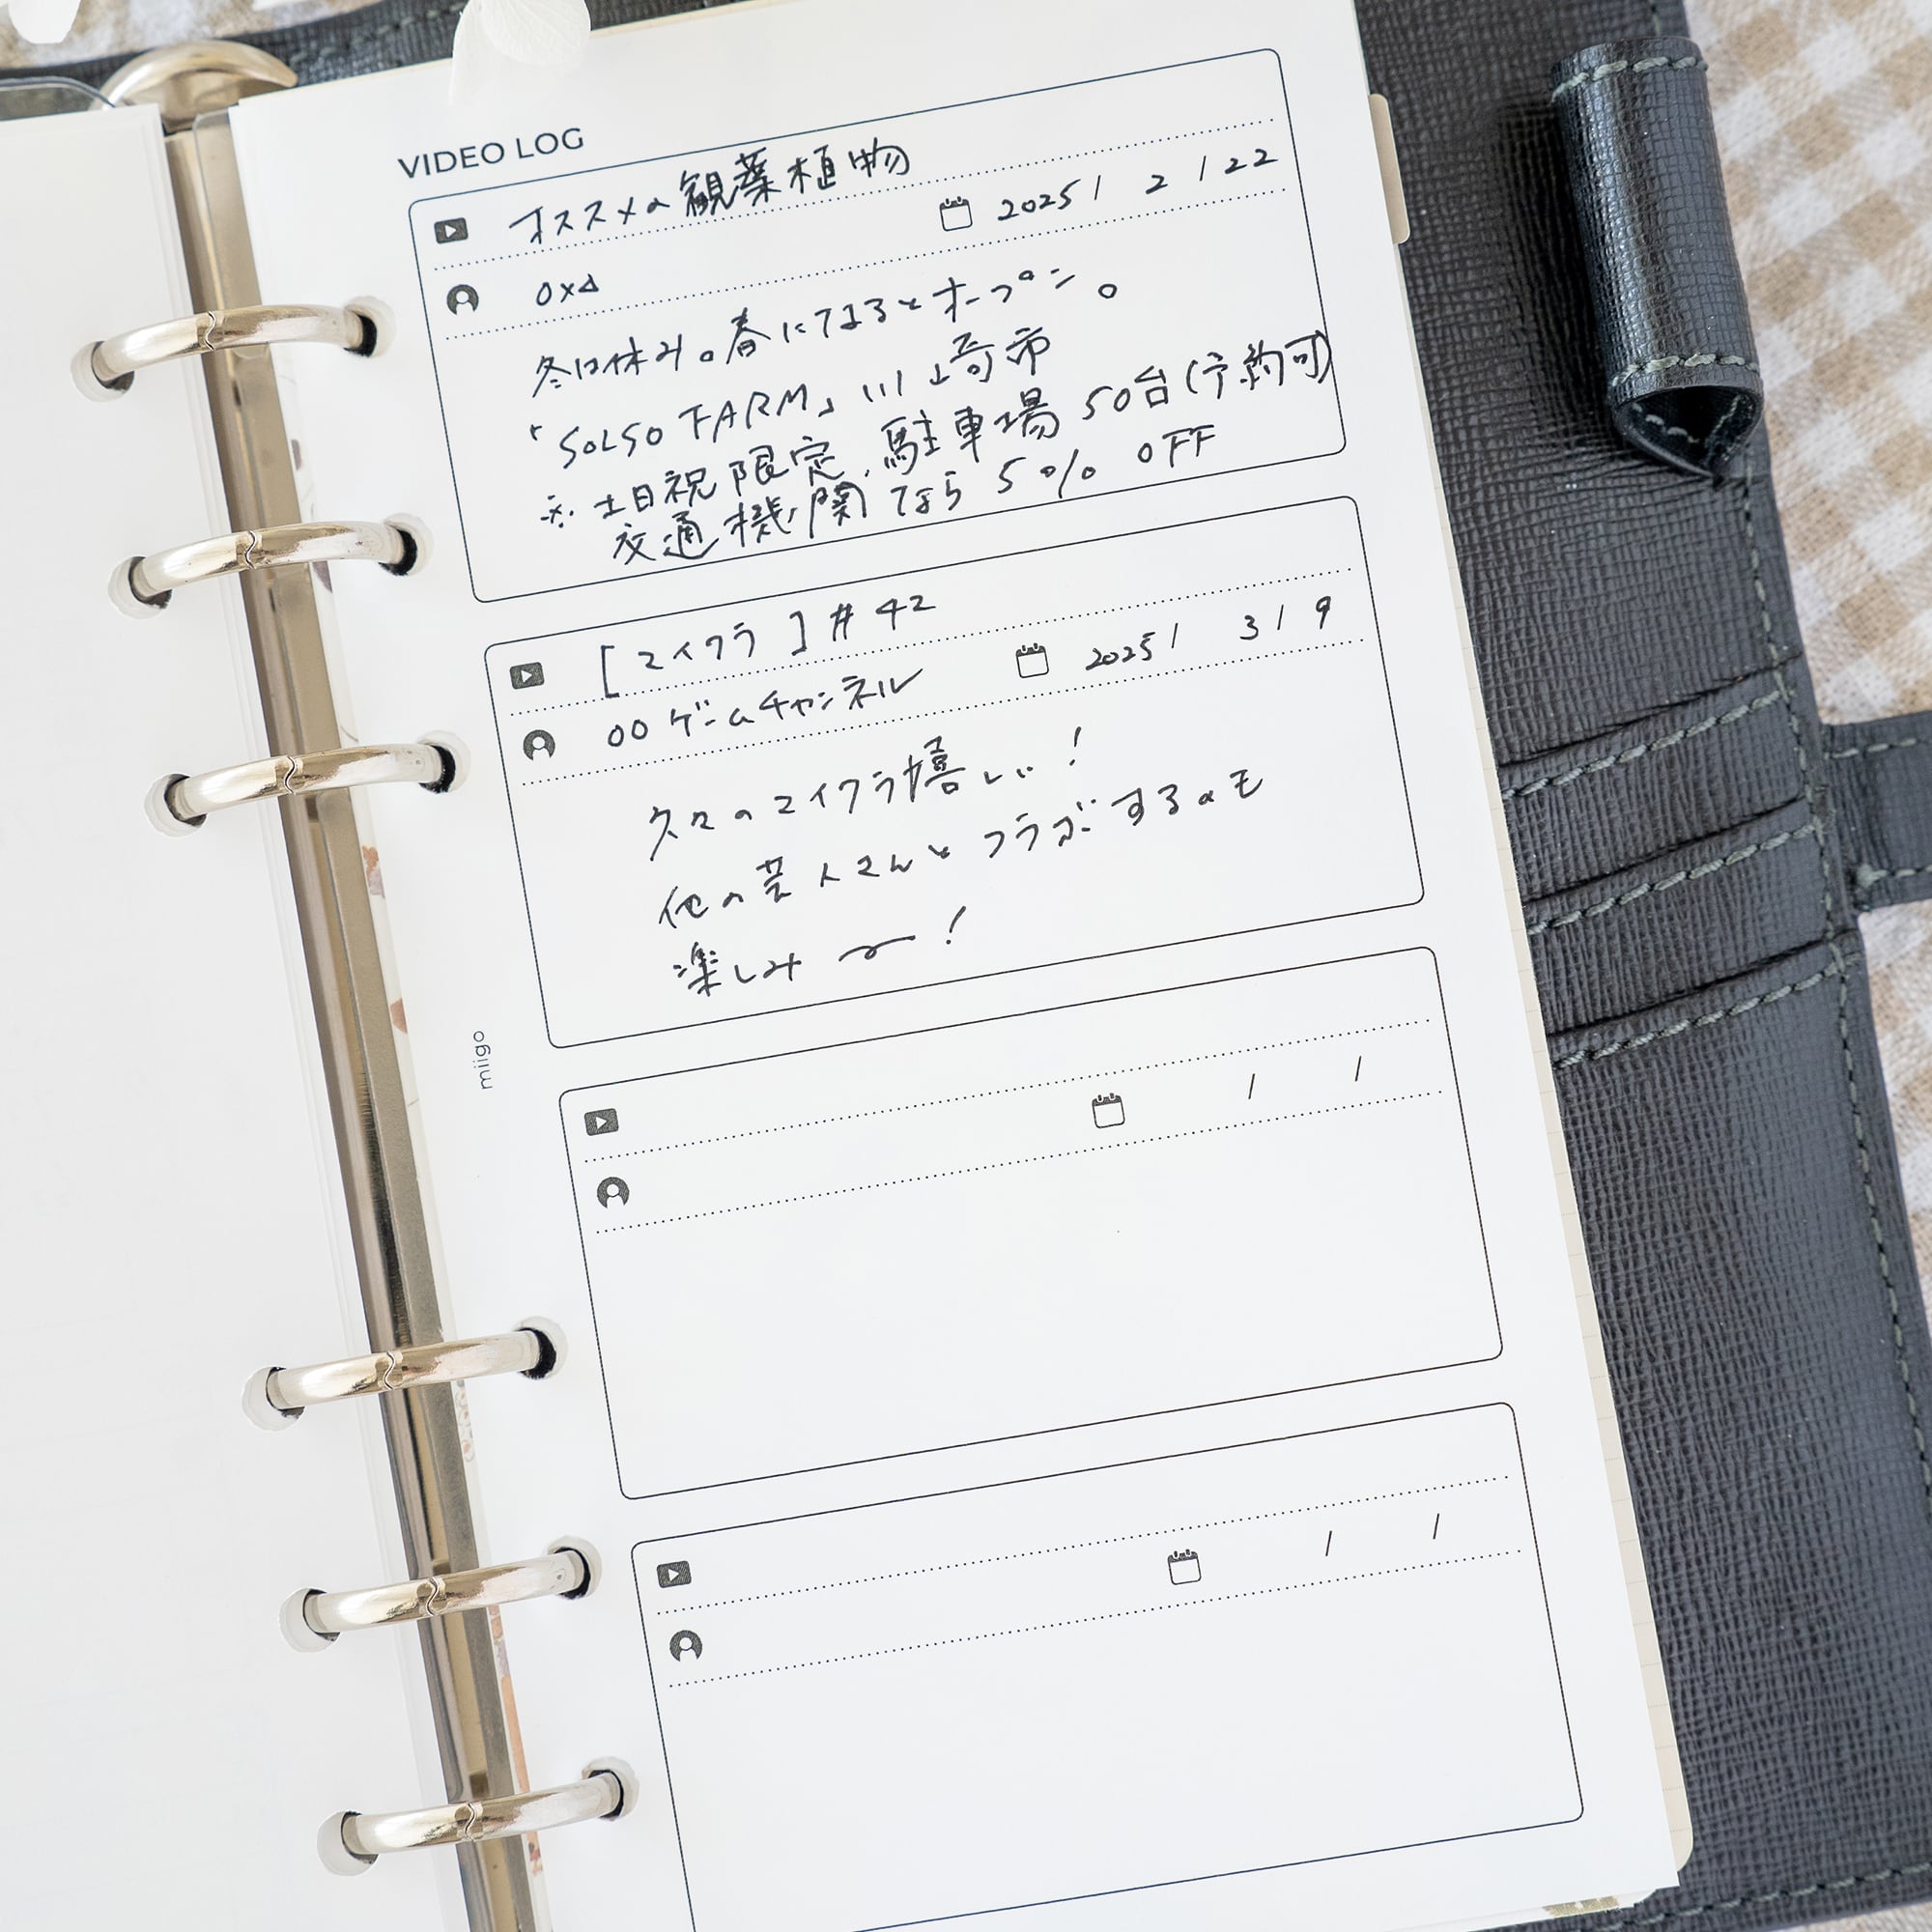 VIDEO LOG
オススメの観葉植物
2025 / 2 / 22
○×△
冬は休み。春になるとオープン。
「SOLSO FARM」川崎市
※土日祝限定、駐車場50台(予約可)
交通機関なら5% OFF
[マイクラ]#42
2025 / 3 / 9
○○ゲームチャンネル
久々のマイクラ嬉しい!
他の芸人さんとコラボするのも
楽しみ〜!
/ /
/ /
miigo